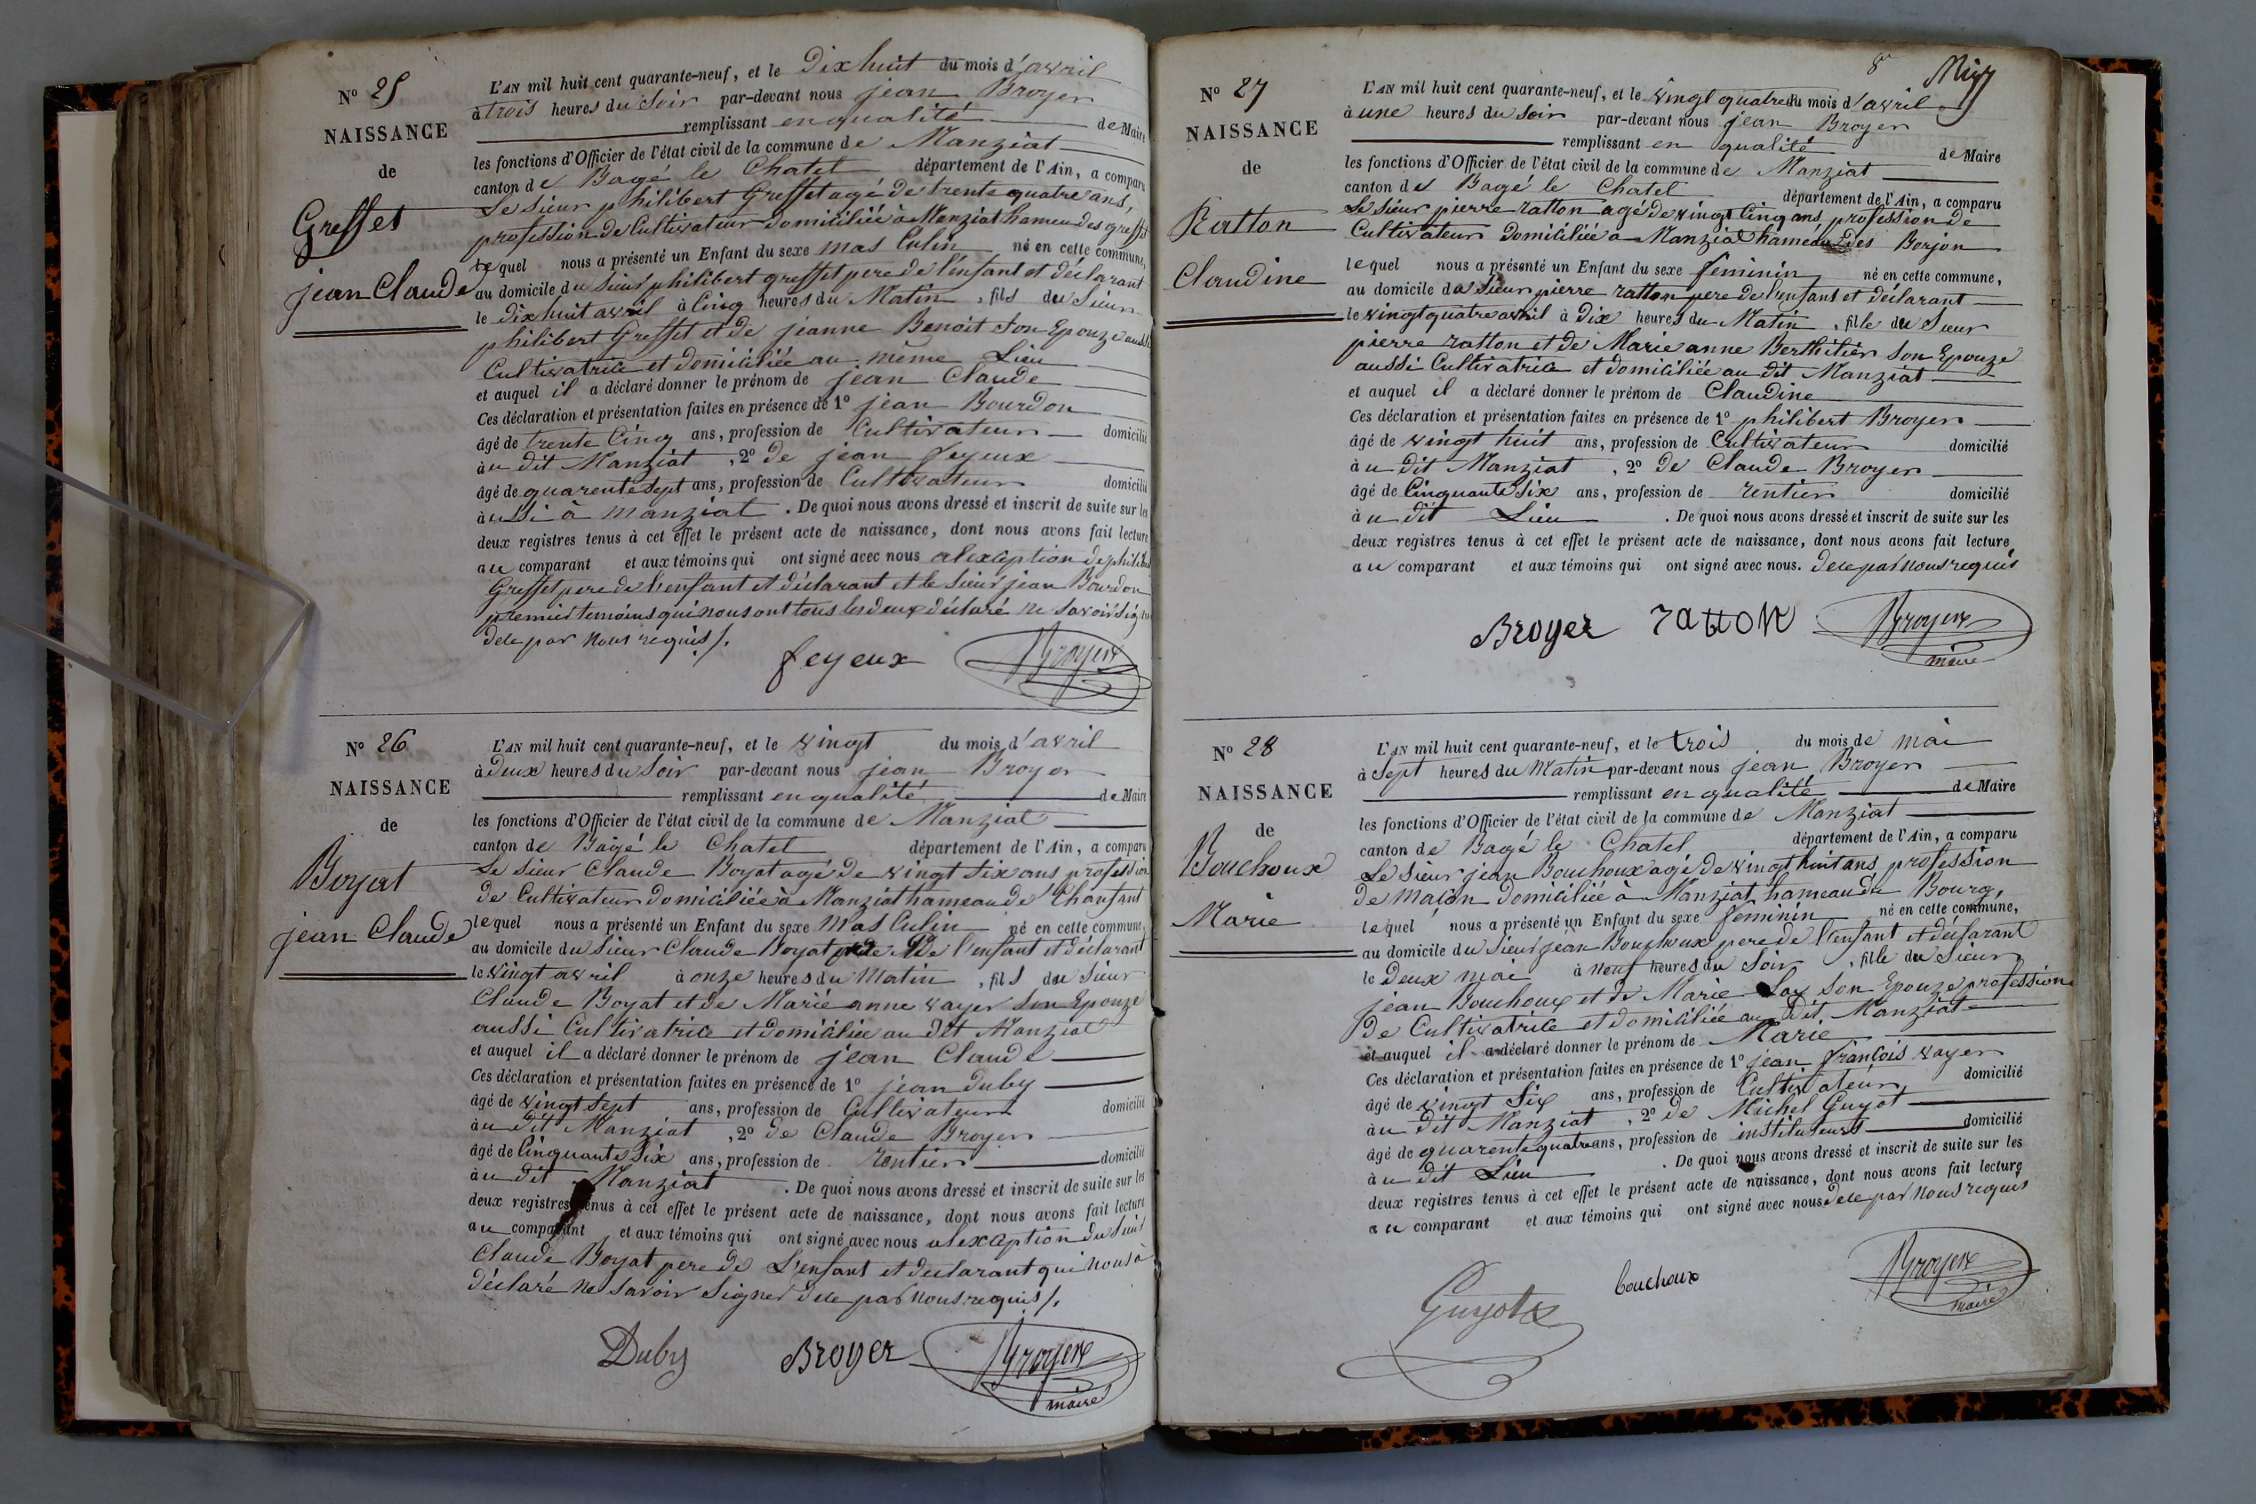 N° 25
NAISSANCE
de
Greffet
jean Claude
L'AN mil huit cent quarante-neuf, et le Dix huit du mois d'avril
à trois heures du Soir par-devant nous jean Broyer
remplissant en qualité de Maire
les fonctions d'Officier de l'état civil de la commune de Manziat
canton de Bagé le Chatel département de l'Ain, a comparu
Le Sieur philibert Greffet agé de trente quatre ans,
profession de Cultivateur domiciliée à Manziat hameau des greffet
lequel nous a présenté un Enfant du sexe masculin né en cette commune,
au domicile du Sieur philibert greffet pere de l'enfant et déclarant
le dix huit avril à Cinq heures du Matin, fils du Sieur
philibert Greffet et de jeanne Benoit Son Epouze aussi
Cultivatrice et domiciliée au même Lieu
et auquel il a déclaré donner le prénom de jean Claude
Ces déclaration et présentation faites en présence de 1° jean Bourdon
âgé de trente Cinq ans, profession de Cultivateur domicilié
àu dit Manziat, 2° de jean feyeux
âgé de quarente sept ans, profession de Cultivateur domicilié
àussi à manziat. De quoi nous avons dressé et inscrit de suite sur les
deux registres tenus à cet effet le présent acte de naissance, dont nous avons fait lecture
au comparant et aux témoins qui ont signé avec nous alexception de philibert
Greffet pere de l'enfant et déclarant et le Sieur jean Bourdon
premier temoins qui nous ont tous les deux déclaré ne Savoir Signer
de ce par nous requis/.
feyeux Broyer
N° 26
NAISSANCE
de
Boyat
jean Claude
L'AN mil huit cent quarante-neuf, et le vingt du mois d'avril
à deux heures du Soir par-devant nous jean Broyer
remplissant en qualité de Maire
les fonctions d'Officier de l'état civil de la commune de Manziat
canton de Bagé le Chatel département de l'Ain, a comparu
Le Sieur Claude Boyat agé de vingt Six ans profession
de Cultivateur domiciliée à Manziat hameau de Chanfant
lequel nous a présenté un Enfant du sexe masculin né en cette commune,
au domicile du Sieur Claude Boyat pere de l'enfant et déclarant
le vingt avril à onze heures du Matin, fils du Sieur
Claude Boyat et de Marie anne vayer Son Epouze
aussi Cultivatrice et domiciliée au dit Manziat
et auquel il a déclaré donner le prénom de jean Claude
Ces déclaration et présentation faites en présence de 1° jean duby
âgé de vingt sept ans, profession de Cultivateur domicilié
àu dit Manziat, 2° de Claude Broyer
âgé de Cinquante Six ans, profession de rentier domicilié
àu dit Manziat. De quoi nous avons dressé et inscrit de suite sur les
deux registres tenus à cet effet le présent acte de naissance, dont nous avons fait lecture
au comparant et aux témoins qui ont signé avec nous alexception du Sieur
Claude Boyat pere de L'enfant et declarant qui nous à
déclaré ne Savoir Signer de ce par nous requis/.
Duby Broyer Broyer
maire
8
N° 27
NAISSANCE
de
Ratton
Claudine
L'AN mil huit cent quarante-neuf, et le vingt quatre du mois d'avril
à une heures du Soir par-devant nous jean Broyer
remplissant en qualité de Maire
les fonctions d'Officier de l'état civil de la commune de Manziat
canton de Bagé le Chatel département de l'Ain, a comparu
Le Sieur pierre ratton agé de vingt Cinq ans, profession de
Cultivateur domiciliée à Manziat hameau des Borjon
lequel nous a présenté un Enfant du sexe feminin né en cette commune,
au domicile du Sieur pierre ratton pere de l'enfant et déclarant
le vingt quatre avril à dix heures du Matin, fille du Sieur
pierre ratton et de Marie anne Berthilier Son Epouze
aussi Cultivatrice et domiciliée au dit Manziat
et auquel il a déclaré donner le prénom de Claudine
Ces déclaration et présentation faites en présence de 1° philibert Broyer
âgé de vingt huit ans, profession de Cultivateur domicilié
àu dit Manziat, 2° de Claude Broyer
âgé de Cinquante Six ans, profession de rentier domicilié
àu dit Lieu. De quoi nous avons dressé et inscrit de suite sur les
deux registres tenus à cet effet le présent acte de naissance, dont nous avons fait lecture
au comparant et aux témoins qui ont signé avec nous. de ce par nous requis
Broyer ratton Broyer
maire
N° 28
NAISSANCE
de
Bouchoux
Marie
L'AN mil huit cent quarante-neuf, et le trois du mois de mai
à Sept heures du Matin par-devant nous jean Broyer
remplissant en qualité de Maire
les fonctions d'Officier de l'état civil de la commune de Manziat
canton de Bagé le Chatel département de l'Ain, a comparu
Le Sieur jean Bouchoux agé de vingt huit ans, profession
de maçon domiciliée à Manziat hameau du Bourg,
lequel nous a présenté un Enfant du sexe feminin né en cette commune,
au domicile du Sieur jean Bouchoux pere de l'enfant et déclarant
le deux mai à neuf heures du Soir, fille du Sieur
jean Bouchoux et de Marie Son Epouze profession
de Cultivatrice et domiciliée au dit Manziat
et auquel il a déclaré donner le prénom de Marie
Ces déclaration et présentation faites en présence de 1° jean françois vayer
âgé de vingt Six ans, profession de Cultivateur domicilié
àu dit Manziat, 2° de Michel Guyot
âgé de quarente quatre ans, profession de instituteur domicilié
àu dit Lieu. De quoi nous avons dressé et inscrit de suite sur les
deux registres tenus à cet effet le présent acte de naissance, dont nous avons fait lecture
au comparant et aux témoins qui ont signé avec nous de ce par nous requis
Guyot bouchoux Broyer
maire